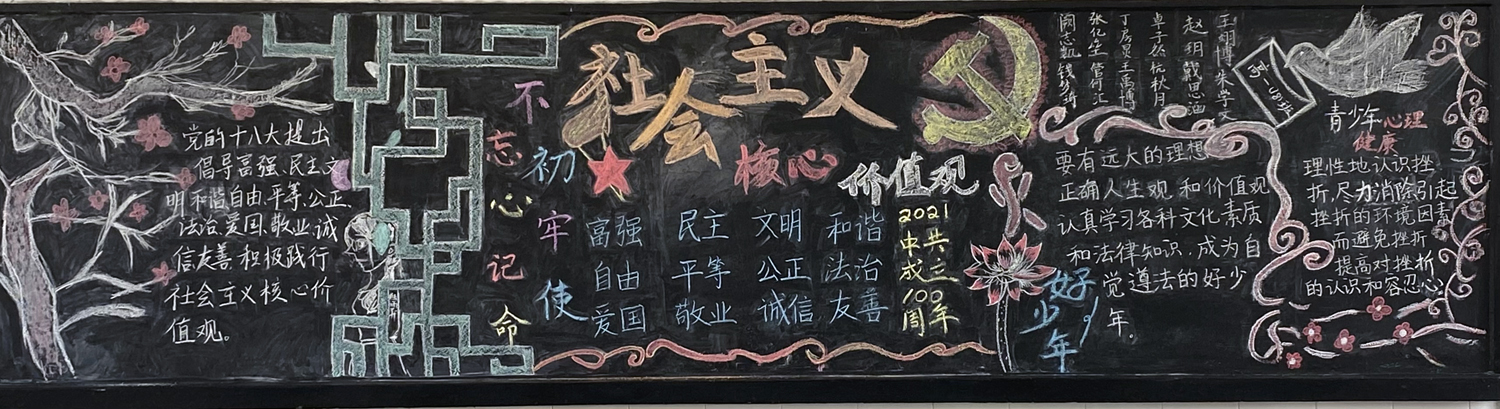 党的十八大提出
倡导富强、民主、文
明、和谐、自由、平等、公正、
法治、爱国、敬业、诚
信、友善，积极践行
社会主义核心价
值观。
不忘初心
牢记使命
社会主义
核心价值观
富强 民主 文明 和谐
自由 平等 公正 法治
爱国 敬业 诚信 友善
2021
中共
成立
100
周年
好少年
要有远大的理想
正确人生观和价值观
认真学习各科文化素质
和法律知识，成为自
觉遵法的好少
年。
青少年心理
健康
理性地认识挫
折，尽力消除引起
挫折的环境因素
而避免挫折
提高对挫折
的认识和容忍心